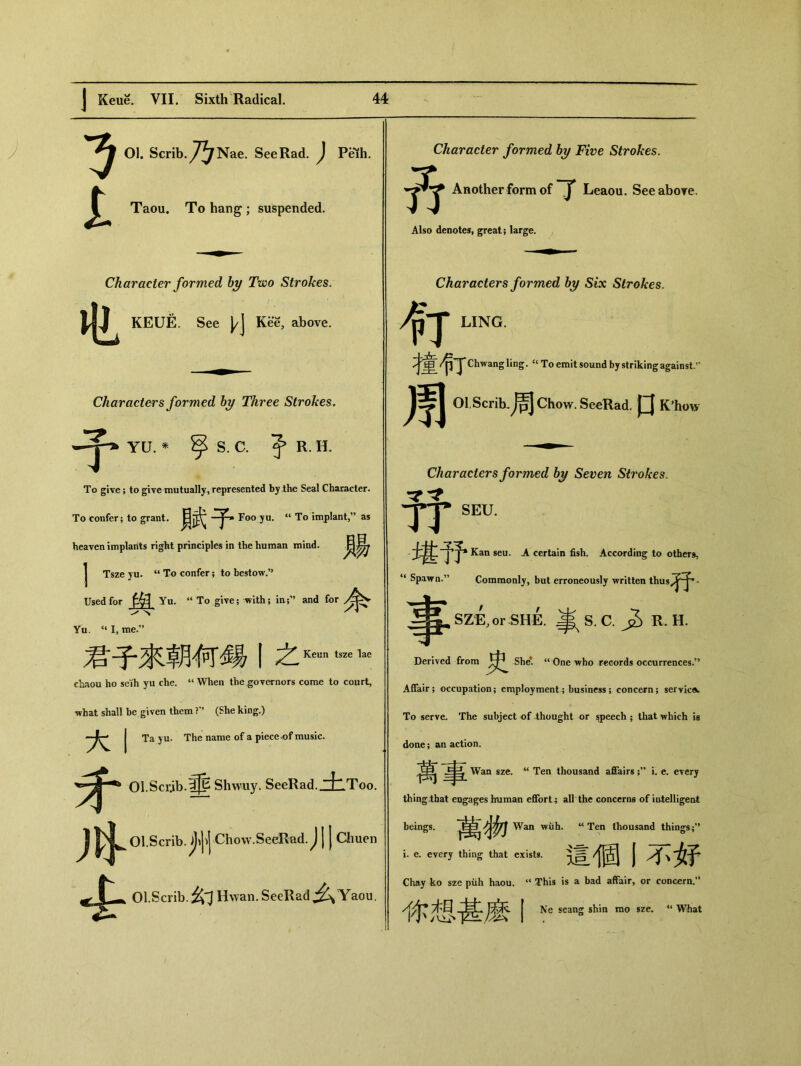 亅 Keuě. VII. Sixth Radical. 44
Ol. Scrib. 乃 Nae. See Rad. 丿 Peïh.
Taou. To hang; suspended.
Character formed by Two Strokes.
KEUĔ. See Këě, above.
Characters formed by Three Strokes.
予 YU. * S. C. R. H.
To give; to give mutually, represented by the Seal Character.
To confer; to grant. 賦予 Foo yu. “ To implant,” as
heaven implants right principles in the human mind. 賜
| Tsze yu. “ To confer; to bestow.”
Used for 與 Yu. “ To give; with; in;” and for 余
Yu. “ I, me.”
君子來朝何錫 | 之 Keun tsze lae
chaou ho seïh yu che. “ When the governors come to court,
what shall be given them ?” (She king.)
大 | Ta yu. The name of a piece of music.
Ol. Scrib. 垂 Shwuy. See Rad. 土 Too.
Ol. Scrib. 州 Chow. See Rad. 川 Chuen
Ol. Scrib. 幻 Hwan. See Rad 幺 Yaou.
Character formed by Five Strokes.
Another form of 了 Leaou. See above.
Also denotes, great; large.
Characters formed by Six Strokes.
LING.
撞 Chwang ling. “ To emit sound by striking against.”
Ol. Scrib. 周 Chow. See Rad. 口 K’how
Characters formed by Seven Strokes.
SEU.
Kan seu. A certain fish. According to others,
“ Spawn.” Commonly, but erroneously written thus
事 SZE, or SHE. S. C. R. H.
Derived from 史 She. “ One who records occurrences.”
Affair; occupation; employment; business; concern; service.
To serve. The subject of thought or speech; that which is
done; an action.
萬事 Wan sze. “ Ten thousand affairs;” i. e. every
thing that engages human effort; all the concerns of intelligent
beings. 萬物 Wan wüh. “ Ten thousand things;”
i. e. every thing that exists. 這個 | 不好
Chay ko sze püh haou. “ This is a bad affair, or concern.”
你想甚麽 | Ne seang shin mo sze. “ What